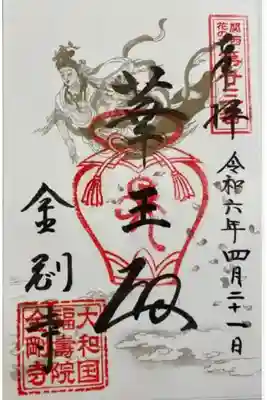 関西
花の寺
第廿三番
奉拝
令和六年四月二十一日
華王殿
金剛寺
大和国
福壽院
金剛寺